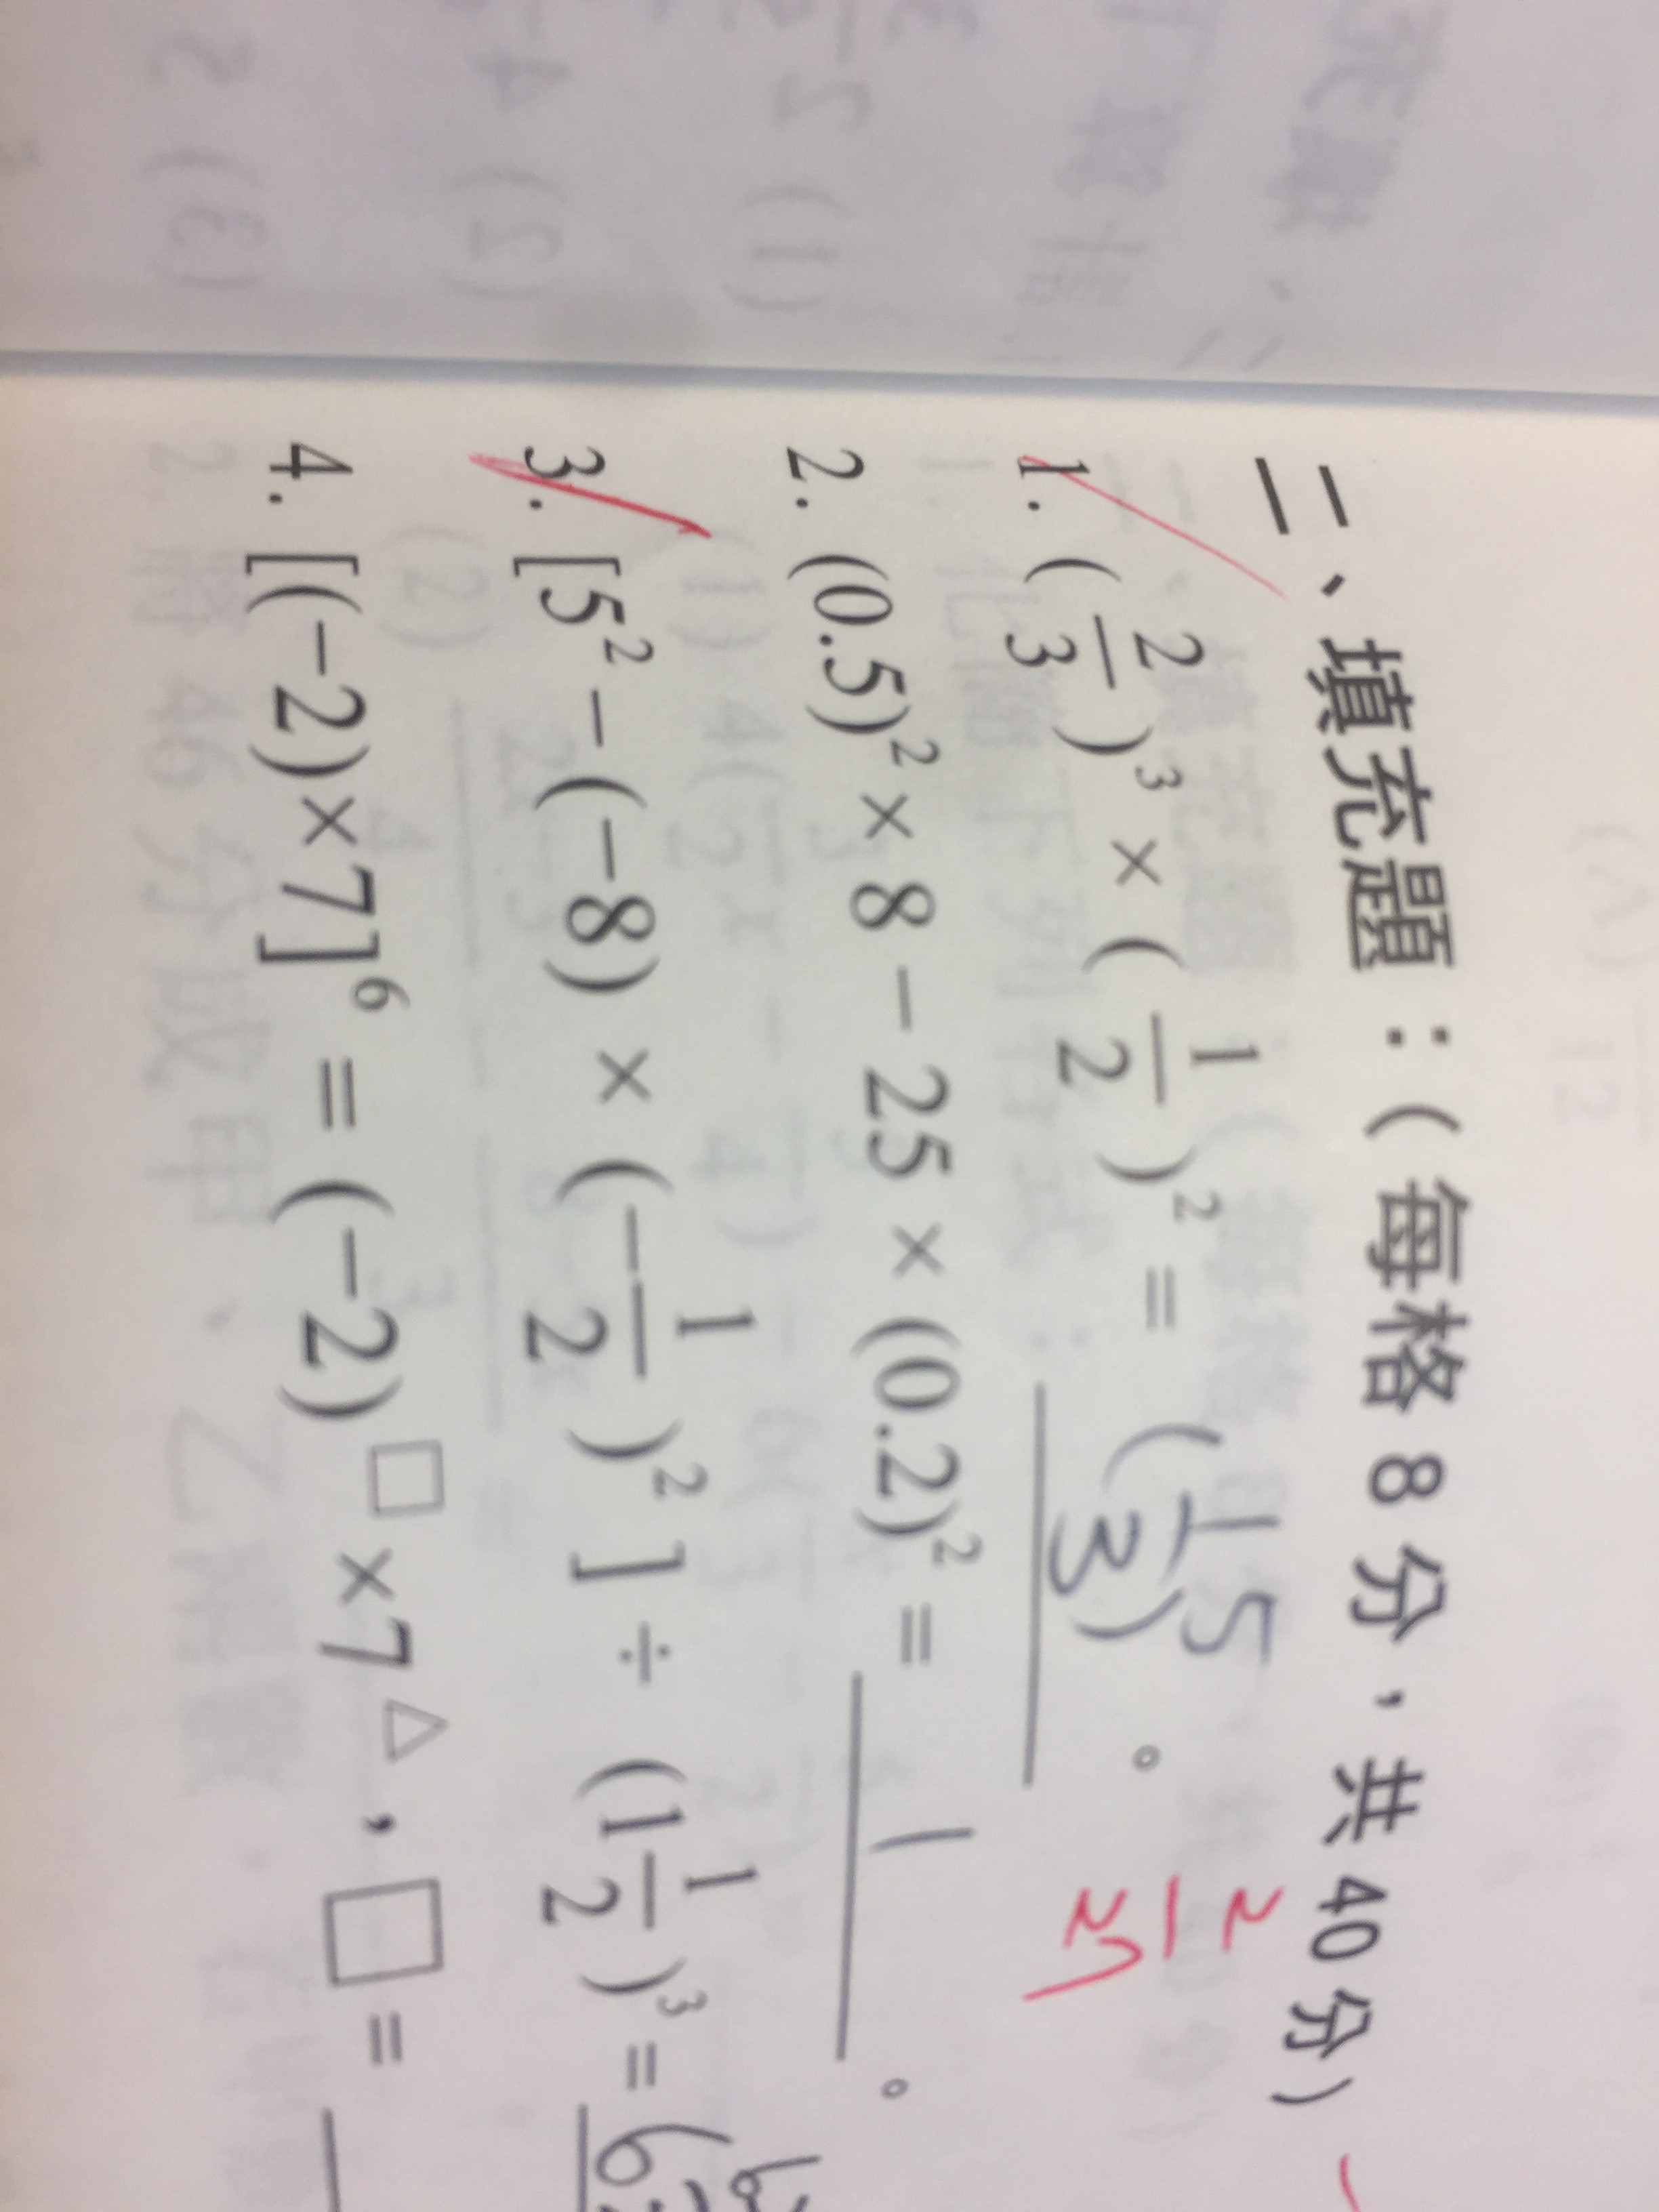 二、填充題：(每格8分，共40分)
1. (2/3)³ × (1/2)² = (1/3)⁵ 。 2/27
2. (0.5)² × 8 − 25 × (0.2)² = 1 。
3. [5² − (−8) × (−1/2)²] ÷ (1 1/2)³ =
4. [(−2)×7]⁶ = (−2)□ ×7△，□ =